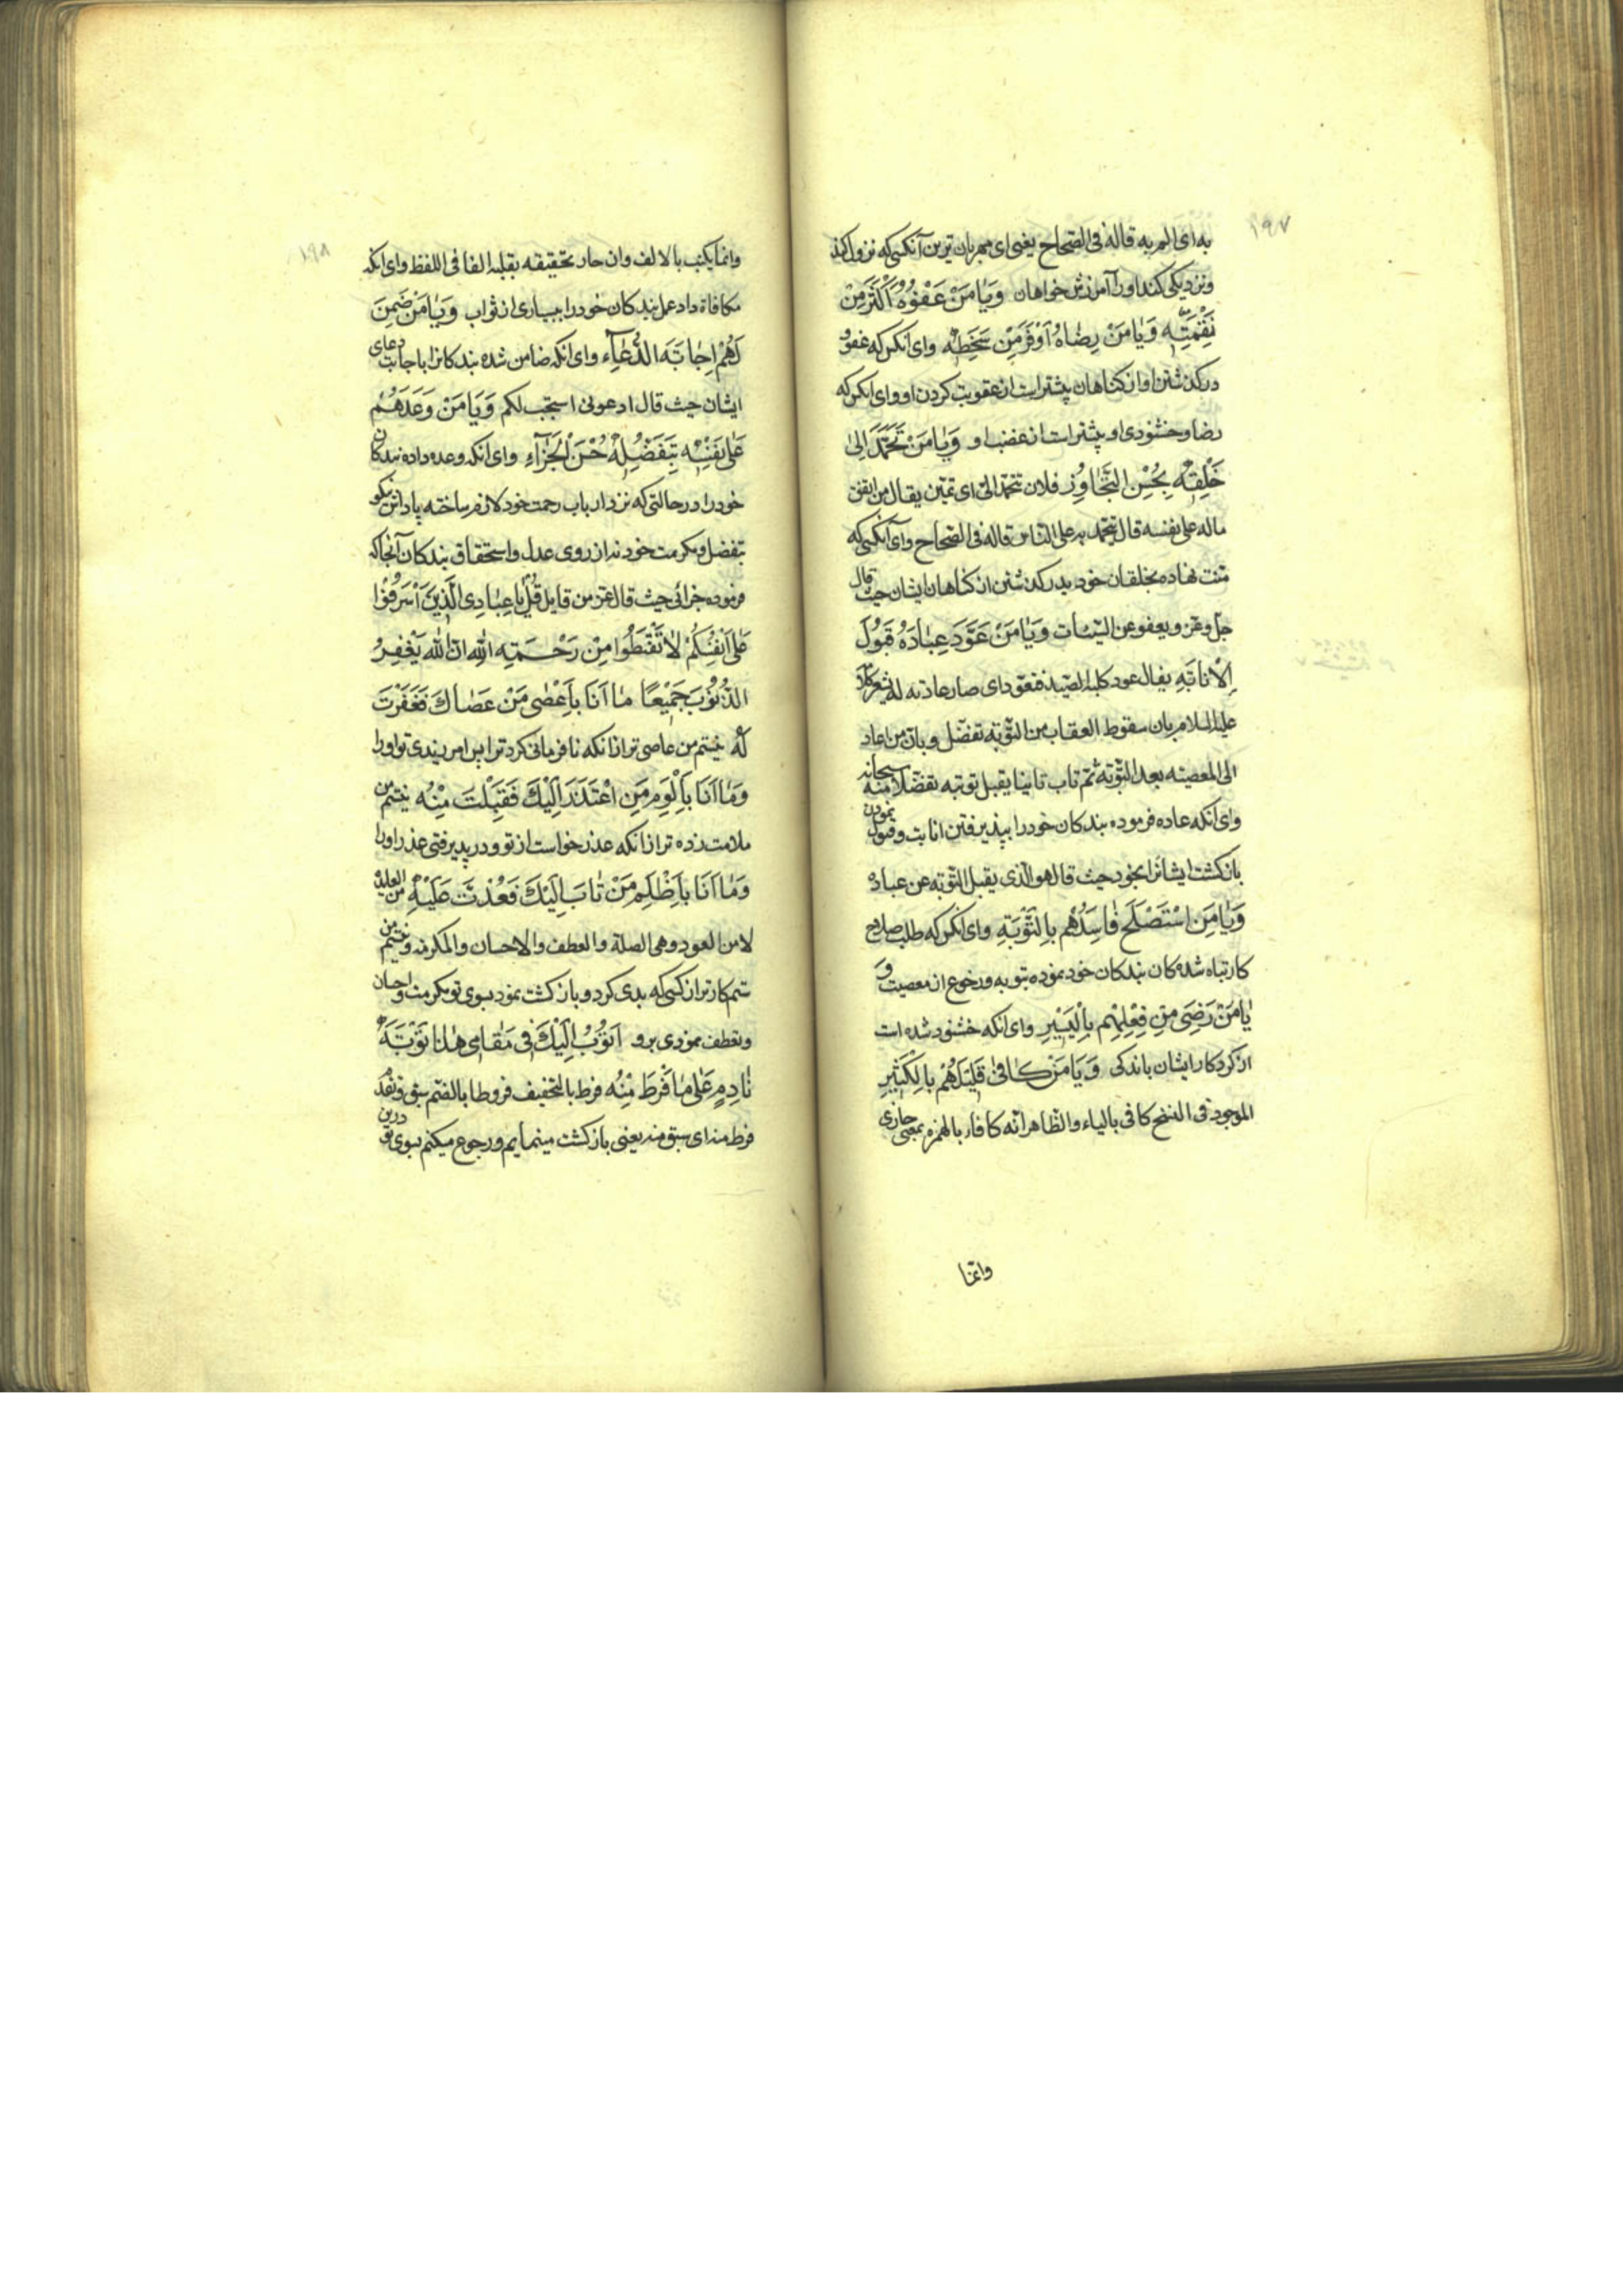 ۱۹۷
به ای الم به قاله فی الصّحاح یعنی ای مهربان ترین آنکسی که نزول کند
ونزدیکی کند اورا آمرزش خواهان وَيَا مَنْ عَفْوُهُ أَكْثَرُ مِنْ
نَقِمَتِهِ وَيَا مَنْ رِضَاهُ أَوْفَرُ مِنْ سَخَطِهِ وای آنکس که عفو
درکذشتن او از کناهان بیشتر است از عقوبت کردن او و ای انکس که
رضا وخشنودی او بیشتر است از غضب او وَيَا مَنْ تَحَمَّدَ إِلَىٰ
خَلْقِهِ بِحُسْنِ التَّجَاوُزِ فلان یتحمّد الیّ ای یمتن یقال من انفق
ماله علی نفسه فلا یتحمّد به علی النّاس قاله فی الصّحاح وای آنکسی که
منّت نهاده بخلقان خود بدرکذشتن از کناهان ایشان حیث قال
جلّ وعز ویعفو عن السّیّئات وَيَا مَنْ عَوَّدَ عِبَادَهُ قَبُولَ
الْإِنَابَةِ یقال عود کلبه الصّید فتعوّد ای صار عادته له یشعر کلامه
علیه السلام بان سقوط العقاب من التّوبة تفضّل وبان من اعاد
الی المعصیة بعد التّوبة ثم تاب ثانیا یقبل توبته تفضّلا منه سبحانه
وای آنکه عاده فرموده بندکان خودرا بپذیرفتن انابت وقبول نمودن
بازکشت ایشانرا بخود حیث قال هو الّذی یقبل التّوبة عن عباده
وَيَا مَنِ اسْتَصْلَحَ فَاسِدَهُمْ بِالتَّوْبَةِ وای انکس که طلب صلاح
کار تباه شده کان بندکان خود نموده بتوبه ورجوع از معصیت وَ
يَا مَنْ رَضِيَ مِنْ فِعْلِهِمْ بِالْيَسِيرِ وای انکه خشنود شده است
از کردکار ایشان باندکی وَيَا مَنْ كَافَىٰ قَلِيلَهُمْ بِالْكَثِيرِ
الموجود فی النسخ کافی بالیاء والظّاهر انّه کافا بالهمزه بمعنی جازی
وانّما
۱۹۸
وانما یکتب بالالف وان جاز تخفیفه بقلبه الفا فی اللفظ وای انکه
مکافاة داد عمل بندکان خودرا ببسیاری از ثواب وَيَا مَنْ ضَمِنَ
لَهُمْ إِجَابَةَ الدُّعَاءِ وای انکه ضامن شده بندکانرا باجابت دعای
ایشان حیث قال ادعونی استجب لکم وَيَا مَنْ وَعَدَهُمْ
عَلَىٰ نَفْسِهِ بِتَفَضُّلِهِ حُسْنَ الْجَزَاءِ وای آنکه وعده داده بندکان
خودرا در حالتی که نزد ارباب رحمت خود لازم ساخته پاداش نیکو
بتفضل ومکرمت خود نه از روی عدل واستحقاق بندکان آنجا که
فرموده حیث قال عز من قایل قُلْ يَا عِبَادِيَ الَّذِينَ أَسْرَفُوا
عَلَىٰ أَنْفُسِكُمْ لَا تَقْنَطُوا مِنْ رَحْمَةِ اللهِ انّ الله يَغْفِرُ
الذُّنُوبَ جَمِيعًا مَا أَنَا بِأَعْصَىٰ مَنْ عَصَاكَ فَغَفَرْتَ
لَهُ نیستم من عاصی تر از انکه نافرمانی کرد ترا پس امرزیدی تو اورا
وَمَا أَنَا بِأَلْوَمِ مَنِ اعْتَذَرَ إِلَيْكَ فَقَبِلْتَ مِنْهُ نیستم من
ملامت زده تر از انکه عذر خواست از تو ودر پذیرفتی عذر اورا
وَمَا أَنَا بِأَظْلَمِ مَنْ تَابَ إِلَيْكَ فَعُدْتَ عَلَيْهِ من العایده
لا من العود وهی الصلة والعطف والاحسان والمکرمه ونیستم من
ستم کارتر از کسی که بدی کرد وبازکشت نمود بسوی تو ومکرمت واحسان
وتعطف نمودی برو أَتُوبُ إِلَيْكَ فِي مَقَامِي هَٰذَا تَوْبَةَ
نَادِمٍ عَلَىٰ مَا فَرَطَ مِنْهُ فرط بالتخفیف فروطا بالضّم سبق وتقدّم
فرط منه ای سبق منه یعنی بازکشت مینمایم ورجوع میکنم بسوی تو درین